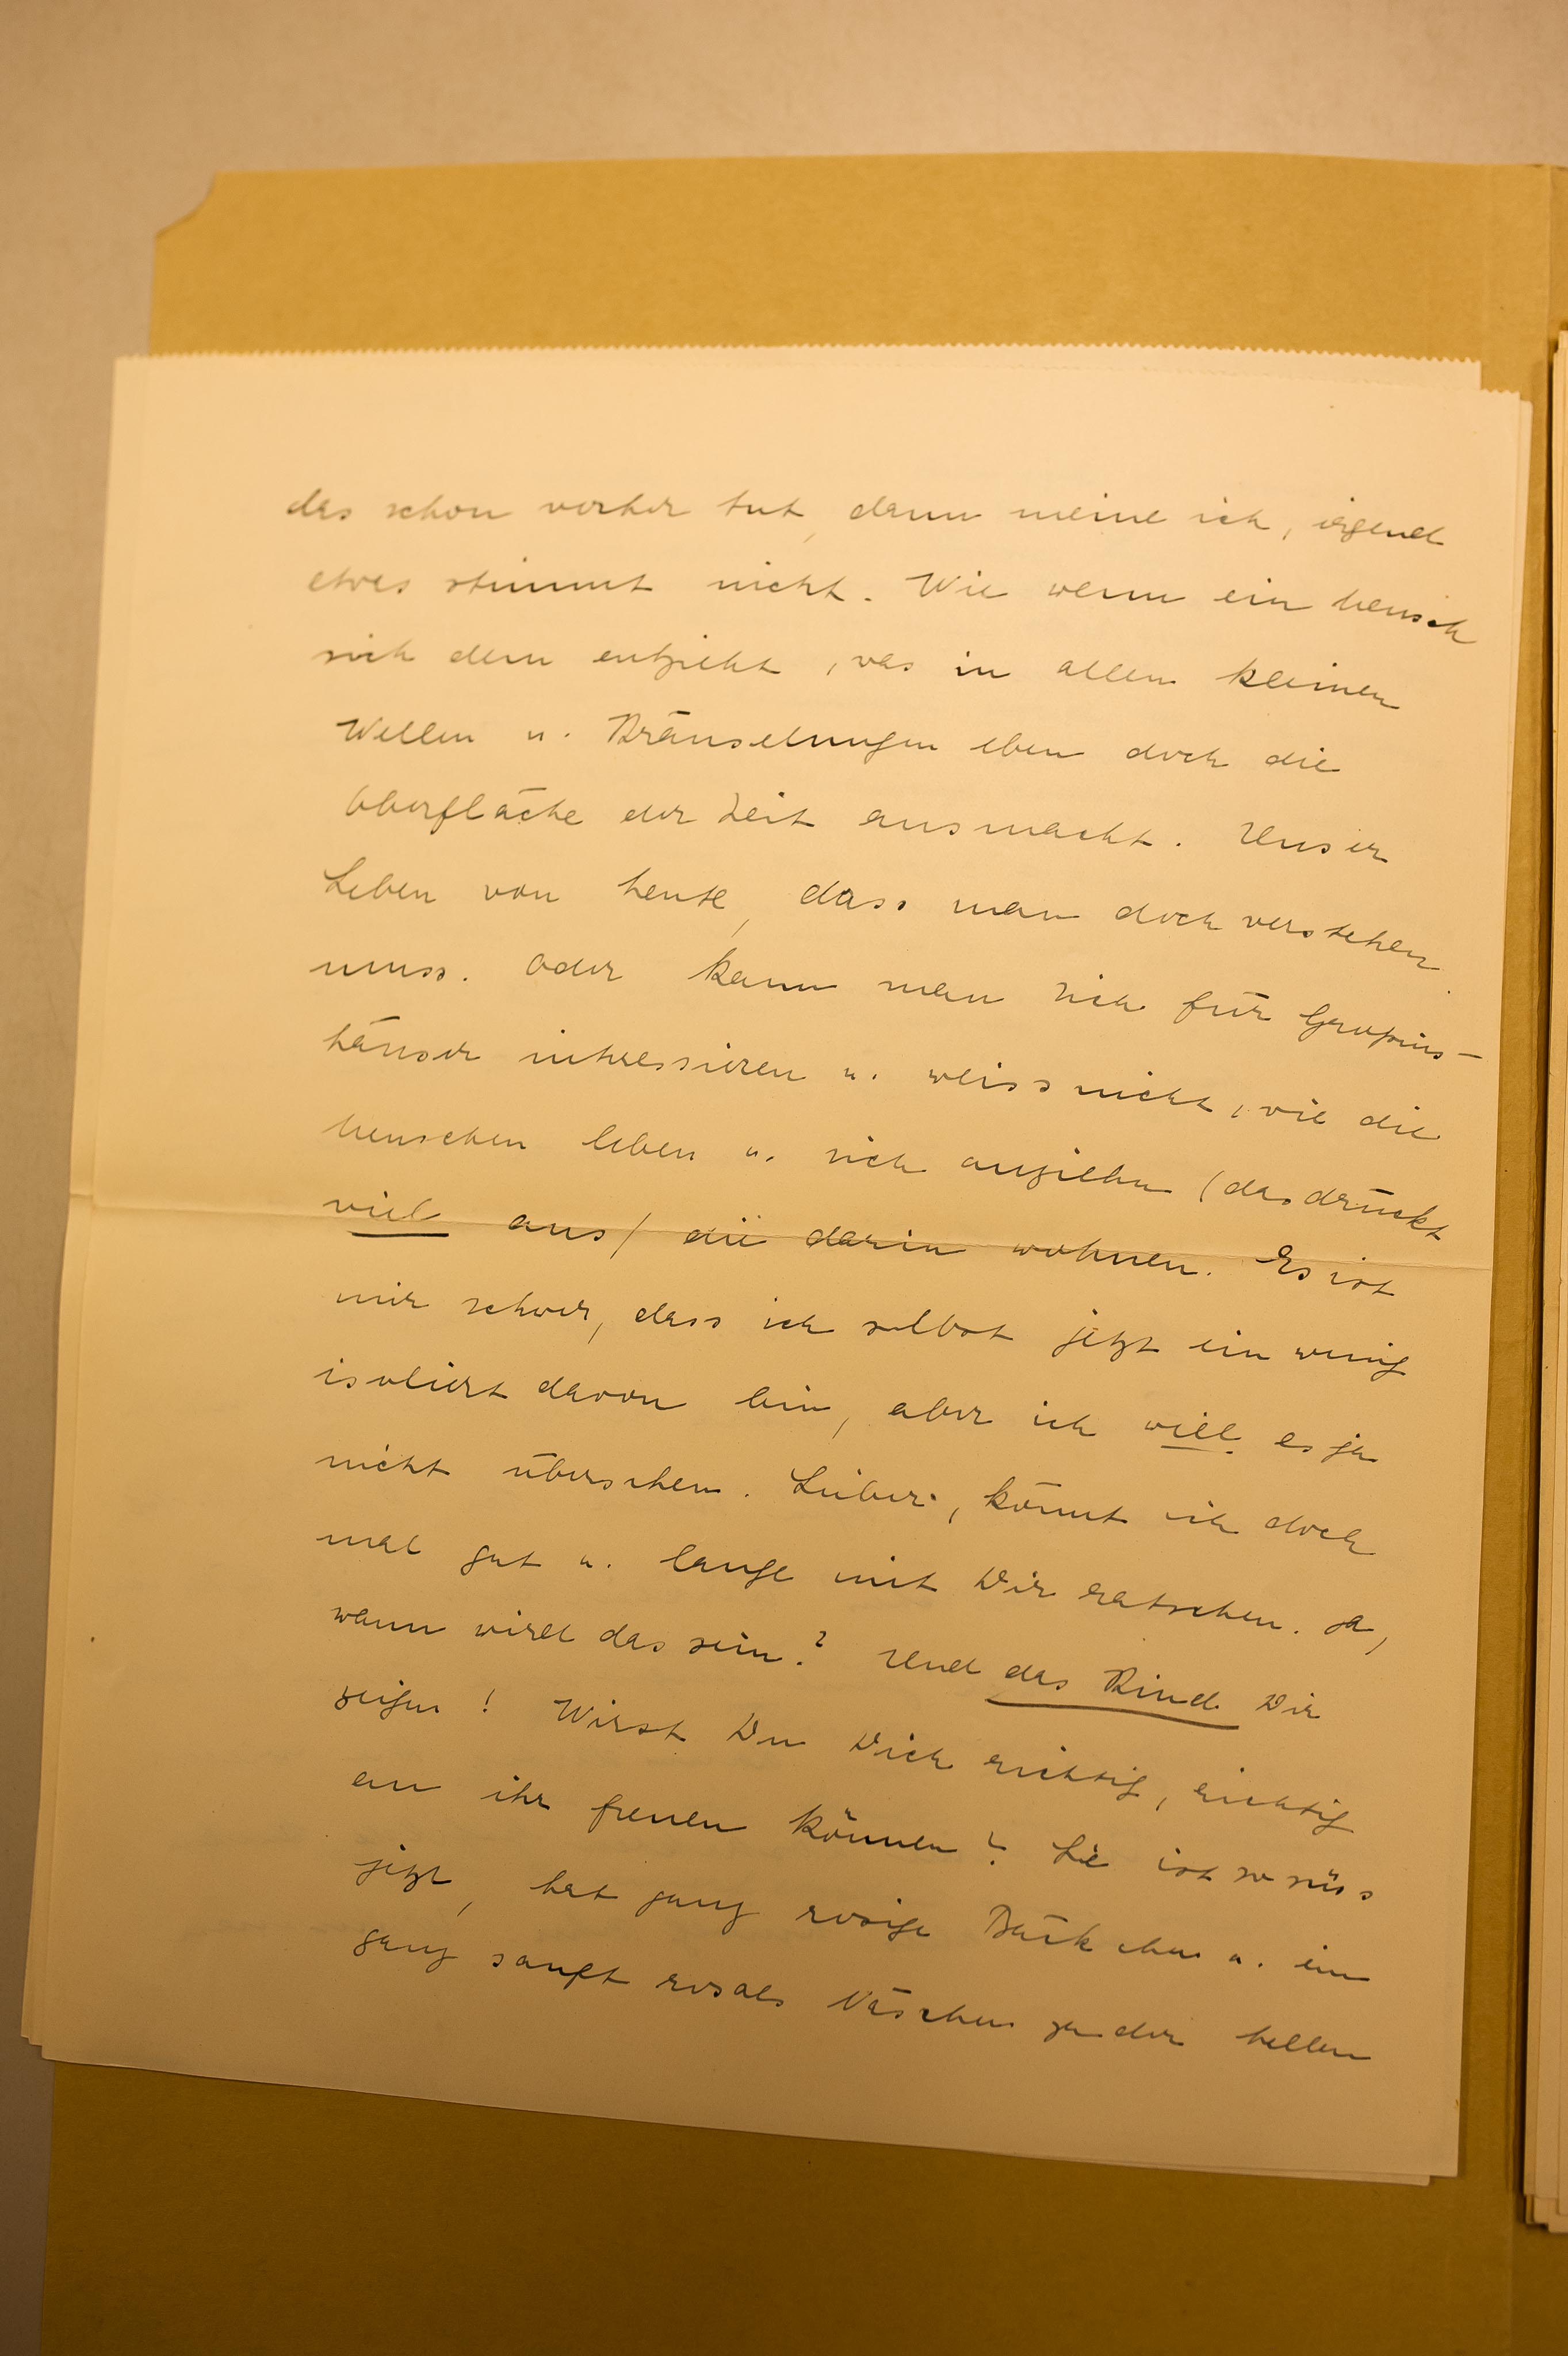 das schon vorher tut, dann meine ich, irgend
etwas stimmt nicht. Wie wenn ein Mensch
sich dem entzieht, was in allen kleinen
Wellen u. Kräuselungen eben doch die
Oberfläche der Zeit ausmacht. Unser
Leben von heute, dass man doch verstehen
muss. Oder kann man sich für Gropius-
häuser intressieren u. weiss nicht, wie die
Menschen leben u. sich anziehn (das drückt
viel aus) die darin wohnen. Es ist
mir schwer, dass ich selbst jetzt ein wenig
isoliert davon bin, aber ich will es ja
nicht übersehen. Lieber, könnt ich doch
mal gut u. lange mit Dir ratschen. Ja,
wann wird das sein? Und das Kind Dir
zeigen! Wirst Du Dich richtig, richtig
an ihr freuen können? Sie ist so süss
jetzt, hat ganz rosige Bäckchen u. ein
ganz sanft rosaes Näschen zu der hellen